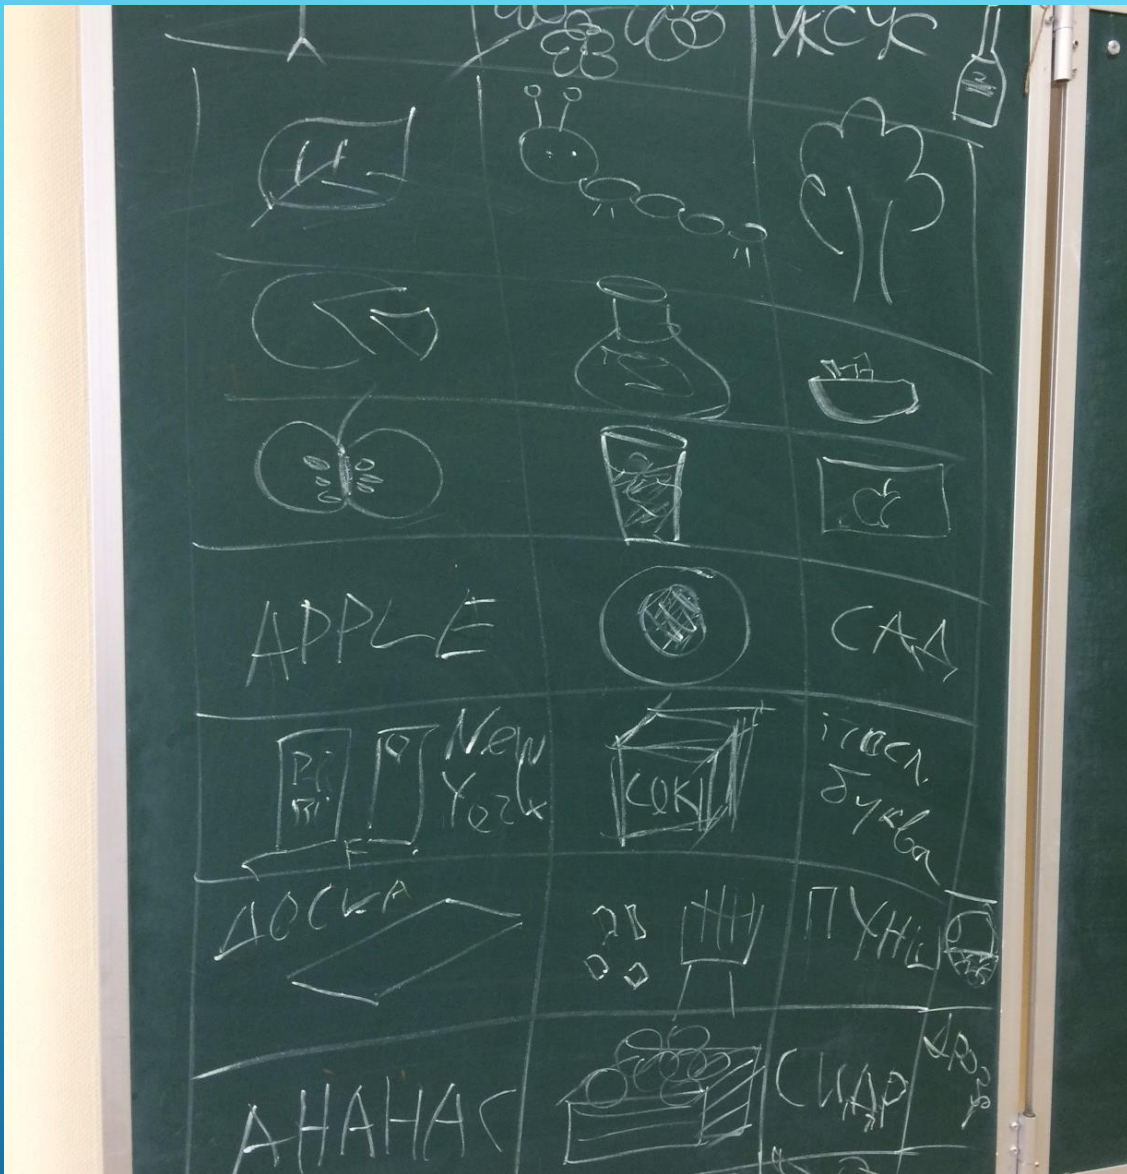 УКСУС
APPLE
САД
New
York
СОКИ
посл.
буква
ДОСКА
ПУНШ
АНАНАС
СИДР